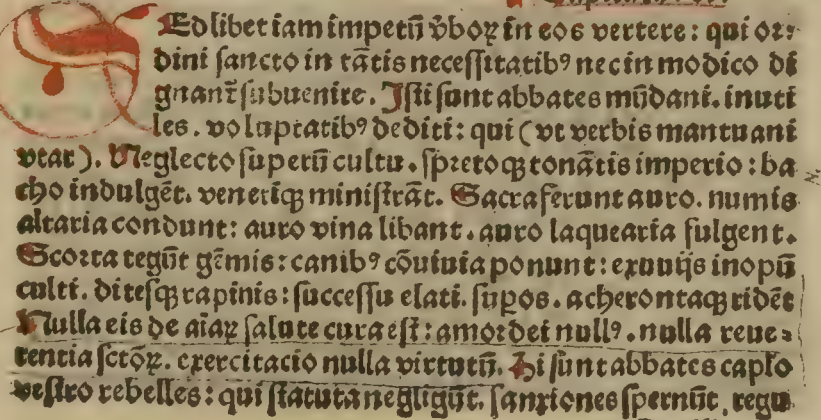 SEd libet iam impetū v̄boꝝ in eos vertere: qui or⸗
dini sancto in tātis necessitatibꝰ nec in modico di
gnant᷑ subuenire. Isti sunt abbates mūdani. inuti
les. voluptatibꝰ dediti: qui (vt verbis mantuani
vtar). Neglecto superū cultu. spretoqꝫ tonātis imperio: ba
cho indulgēt. veneriqꝫ ministrāt. Sacra ferunt auro. numis
altaria condunt: auro vina libant. auro laquearia fulgent.
Scorta tegūt gēmis: canibꝰ cōuiuia ponunt: exuuijs inopū
culti. ditesqꝫ rapinis: successu elati. supos. acherontaqꝫ ridēt
Nulla eis de aīaꝝ salute cura est: amor dei nullꝰ. nulla reue⸗
rentia sctōꝝ. exercitacio nulla virtutū. Hi sunt abbates caplo
vestro rebelles: qui statuta negligūt. sanxiones spernūt. regu